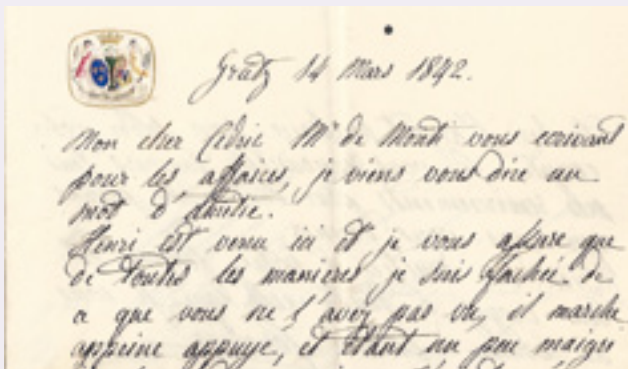 Gratz 14 Mars 1842.
Mon cher Cédric Mr de Monti vous ecrivant
pour les affaires, je viens vous dire un
mot d'amitie.
Henri est venu ici et je vous assure que
de toutes les manieres je suis fachée de
ce que vous ne l'avez pas vu, il marche
appeine appuye, et etant un peu maigri